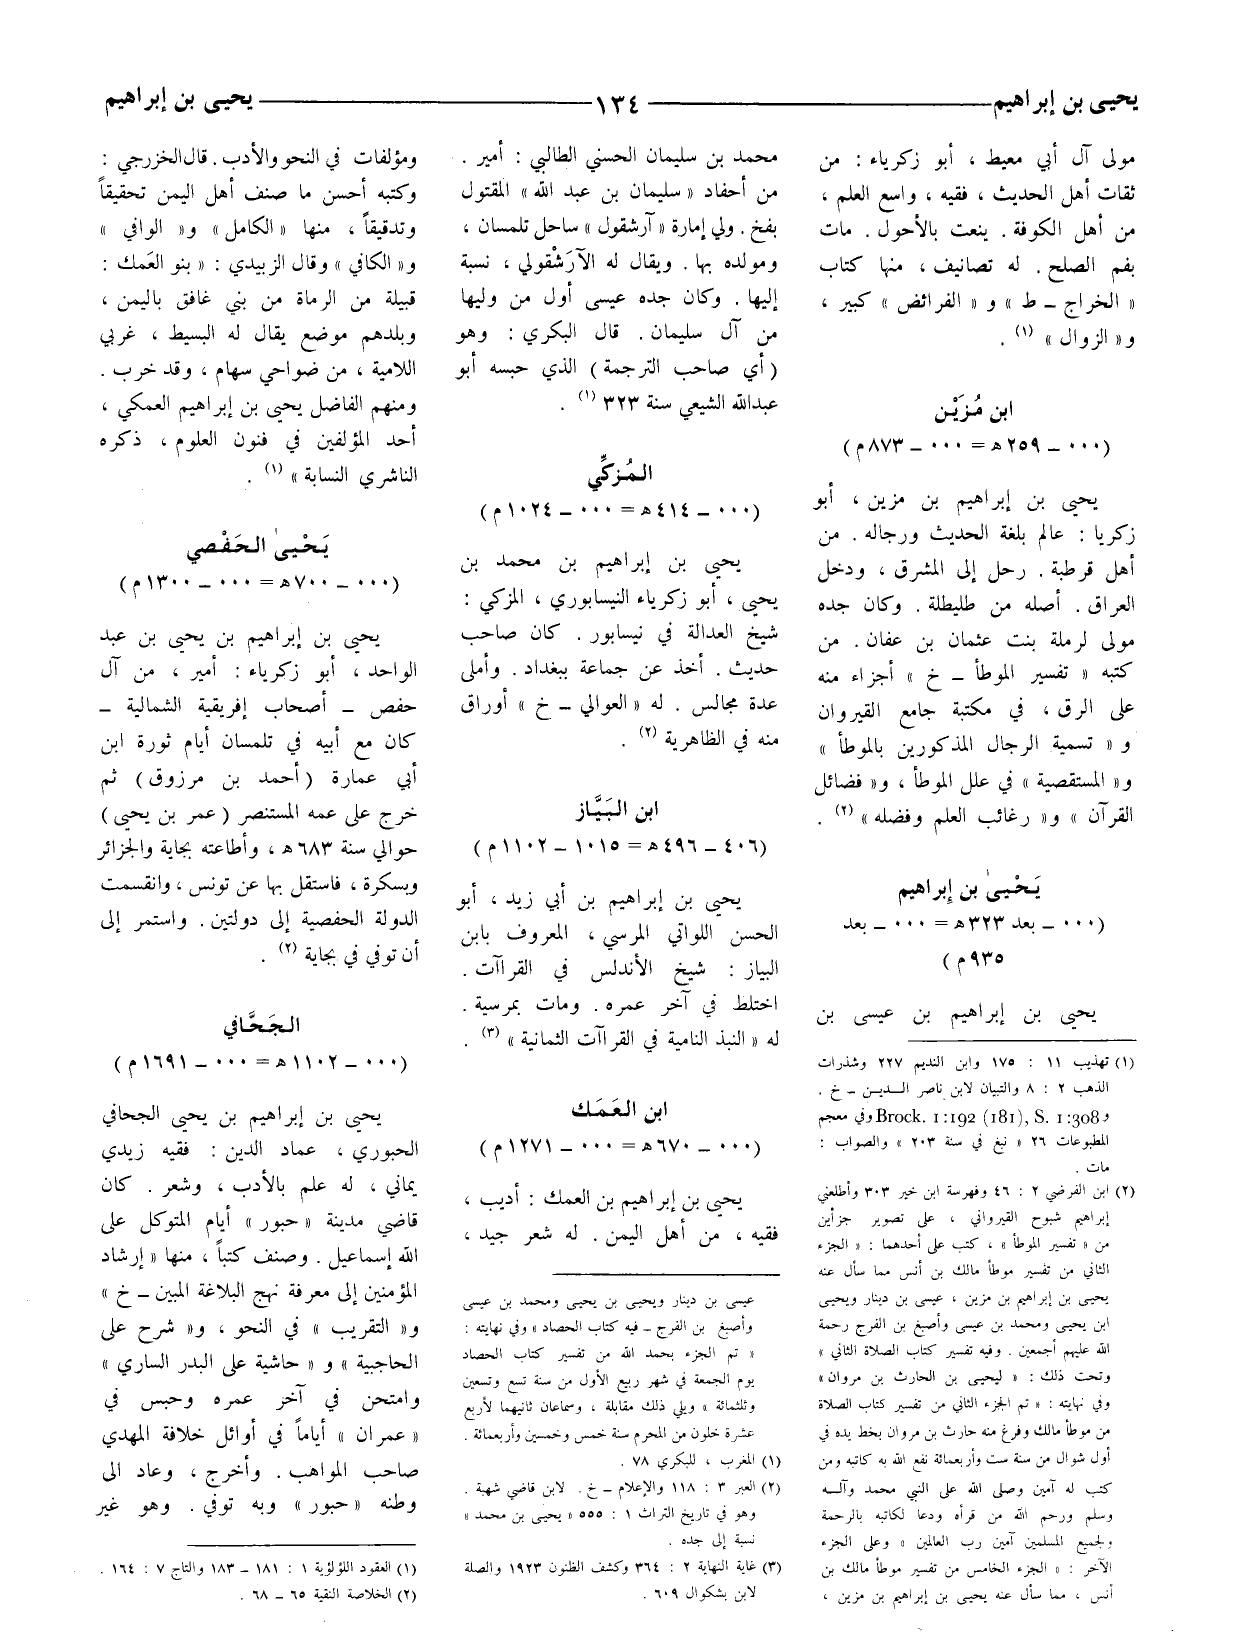 يحيى بن إبراهيم
١٣٤
يحيى بن إبراهيم
مولى آل أبي معيط ، أبو زكرياء : من
ثقات أهل الحديث ، فقيه ، واسع العلم ،
من أهل الكوفة . ينعت بالأحول . مات
بفم الصلح . له تصانيف ، منها كتاب
« الخراج ـ ط » و « الفرائض » كبير ،
و« الزوال » (١) .
ابن مُزَيْن
(٠٠٠ ـ ٢٥٩ هـ = ٠٠٠ ـ ٨٧٣ م)
يحيى بن إبراهيم بن مزين ، أبو
زكريا : عالم بلغة الحديث ورجاله . من
أهل قرطبة . رحل إلى المشرق ، ودخل
العراق . أصله من طليطلة . وكان جده
مولى لرملة بنت عثمان بن عفان . من
كتبه « تفسير الموطأ ـ خ » أجزاء منه
على الرق ، في مكتبة جامع القيروان
و « تسمية الرجال المذكورين بالموطأ »
و« المستقصية » في علل الموطأ ، و« فضائل
القرآن » و« رغائب العلم وفضله » (٢) .
يَحْيىٰ بن إِبراهيم
(٠٠٠ ـ بعد ٣٢٣ هـ = ٠٠٠ ـ بعد
٩٣٥ م)
يحيى بن إبراهيم بن عيسى بن
(١) تهذيب ١١ : ١٧٥ وابن النديم ٢٢٧ وشذرات
الذهب ٢ : ٨ والتبيان لابن ناصر الـــديــن ـ خ .
و Brock. 1:192 (181), S. 1:308 وفي معجم
المطبوعات ٢٦ « نبغ في سنة ٢٠٣ » والصواب :
مات .
(٢) ابن الفرضي ٢ : ٤٦ وفهرسة ابن خير ٣٠٣ وأطلعني
إبراهيم شبوح القيرواني ، على تصوير جزأين
من « تفسير الموطأ » ، كتب على أحدهما : « الجزء
الثاني من تفسير موطأ مالك بن أنس مما سأل عنه
يحيى بن إبراهيم بن مزين ، عيسى بن دينار ويحيى
ابن يحيى ومحمد بن عيسى وأصبغ بن الفرج رحمة
الله عليهم أجمعين . وفيه تفسير كتاب الصلاة الثاني »
وتحت ذلك : « ليحيى بن الحارث بن مروان »
وفي نهايته : « تم الجزء الثاني من تفسير كتاب الصلاة
من موطأ مالك وفرغ منه حارث بن مروان بخط يده في
أول شوال من سنة ست وأربعمائة نفع الله به كاتبه ومن
كتب له آمين وصلى الله على النبي محمد وآلــه
وسلم ورحم الله من قرأه ودعا لكاتبه بالرحمة
ولجميع المسلمين آمين رب العالمين » وعلى الجزء
الآخر : « الجزء الخامس من تفسير موطأ مالك بن
أنس ، مما سأل عنه يحيى بن إبراهيم بن مزين ،
محمد بن سليمان الحسني الطالبي : أمير .
من أحفاد « سليمان بن عبد الله » المقتول
بفخ . ولي إمارة « آرشقول » ساحل تلمسان ،
ومولده بها . ويقال له الآرَشْقولي ، نسبة
إليها . وكان جده عيسى أول من وليها
من آل سليمان . قال البكري : وهو
( أي صاحب الترجمة ) الذي حبسه أبو
عبدالله الشيعي سنة ٣٢٣ (١) .
المُزكِّي
(٠٠٠ ـ ٤١٤ هـ = ٠٠٠ ـ ١٠٢٤ م)
يحيى بن إبراهيم بن محمد بن
يحيى ، أبو زكرياء النيسابوري ، المزكي :
شيخ العدالة في نيسابور . كان صاحب
حديث . أخذ عن جماعة ببغداد . وأملى
عدة مجالس . له « العوالي ـ خ » أوراق
منه في الظاهرية (٢) .
ابن البَيَّاز
(٤٠٦ ـ ٤٩٦ هـ = ١٠١٥ ـ ١١٠٢ م)
يحيى بن إبراهيم بن أبي زيد ، أبو
الحسن اللواتي المرسي ، المعروف بابن
البياز : شيخ الأندلس في القراآت .
اختلط في آخر عمره . ومات بمرسية .
له « النبذ النامية في القراآت الثمانية » (٣) .
ابن العَمَك
(٠٠٠ ـ ٦٧٠ هـ = ٠٠٠ ـ ١٢٧١ م)
يحيى بن إبراهيم بن العمك : أديب ،
فقيه ، من أهل اليمن . له شعر جيد ،
عيسى بن دينار ويحيى بن يحيى ومحمد بن عيسى
وأصبغ بن الفرج ـ فيه كتاب الحصاد » وفي نهايته :
« تم الجزء بحمد الله من تفسير كتاب الحصاد
يوم الجمعة في شهر ربيع الأول من سنة تسع وتسعين
وثلثمائة » ويلي ذلك مقابلة ، وسماعان ثانيهما لأربع
عشرة خلون من المحرم سنة خمس وخمسين وأربعمائة .
(١) المغرب ، للبكري ٧٨ .
(٢) العبر ٣ : ١١٨ والإعلام ـ خ . لابن قاضي شهبة .
وهو في تاريخ التراث ١ : ٥٥٥ « يحيى بن محمد »
نسبة إلى جده .
(٣) غاية النهاية ٢ : ٣٦٤ وكشف الظنون ١٩٢٣ والصلة
لابن بشكوال ٦٠٩ .
ومؤلفات في النحو والأدب . قال الخزرجي :
وكتبه أحسن ما صنف أهل اليمن تحقيقاً
وتدقيقاً ، منها « الكامل » و« الوافي »
و« الكافي » وقال الزبيدي : « بنو العَمك :
قبيلة من الرماة من بني غافق باليمن ،
وبلدهم موضع يقال له البسيط ، غربي
اللامية ، من ضواحي سهام ، وقد خرب .
ومنهم الفاضل يحيى بن إبراهيم العمكي ،
أحد المؤلفين في فنون العلوم ، ذكره
الناشري النسابة » (١) .
يَحْيىٰ الحَفْصي
(٠٠٠ ـ ٧٠٠ هـ = ٠٠٠ ـ ١٣٠٠ م)
يحيى بن إبراهيم بن يحيى بن عبد
الواحد ، أبو زكرياء : أمير ، من آل
حفص ـ أصحاب إفريقية الشمالية ـ
كان مع أبيه في تلمسان أيام ثورة ابن
أبي عمارة ( أحمد بن مرزوق ) ثم
خرج على عمه المستنصر ( عمر بن يحيى )
حوالي سنة ٦٨٣ هـ ، وأطاعته بجاية والجزائر
وبسكرة ، فاستقل بها عن تونس ، وانقسمت
الدولة الحفصية إلى دولتين . واستمر إلى
أن توفي في بجاية (٢) .
الجَحَّافي
(٠٠٠ ـ ١١٠٢ هـ = ٠٠٠ ـ ١٦٩١ م)
يحيى بن إبراهيم بن يحيى الجحافي
الحبوري ، عماد الدين : فقيه زيدي
يماني ، له علم بالأدب ، وشعر . كان
قاضي مدينة « حبور » أيام المتوكل على
الله إسماعيل . وصنف كتباً ، منها « إرشاد
المؤمنين إلى معرفة نهج البلاغة المبين ـ خ »
و« التقريب » في النحو ، و« شرح على
الحاجبية » و « حاشية على البدر الساري »
وامتحن في آخر عمره وحبس في
« عمران » أياماً في أوائل خلافة المهدي
صاحب المواهب . وأخرج ، وعاد الى
وطنه « حبور » وبه توفي . وهو غير
(١) العقود اللؤلؤية ١ : ١٨١ ـ ١٨٣ والتاج ٧ : ١٦٤ .
(٢) الخلاصة النقية ٦٥ ـ ٦٨ .